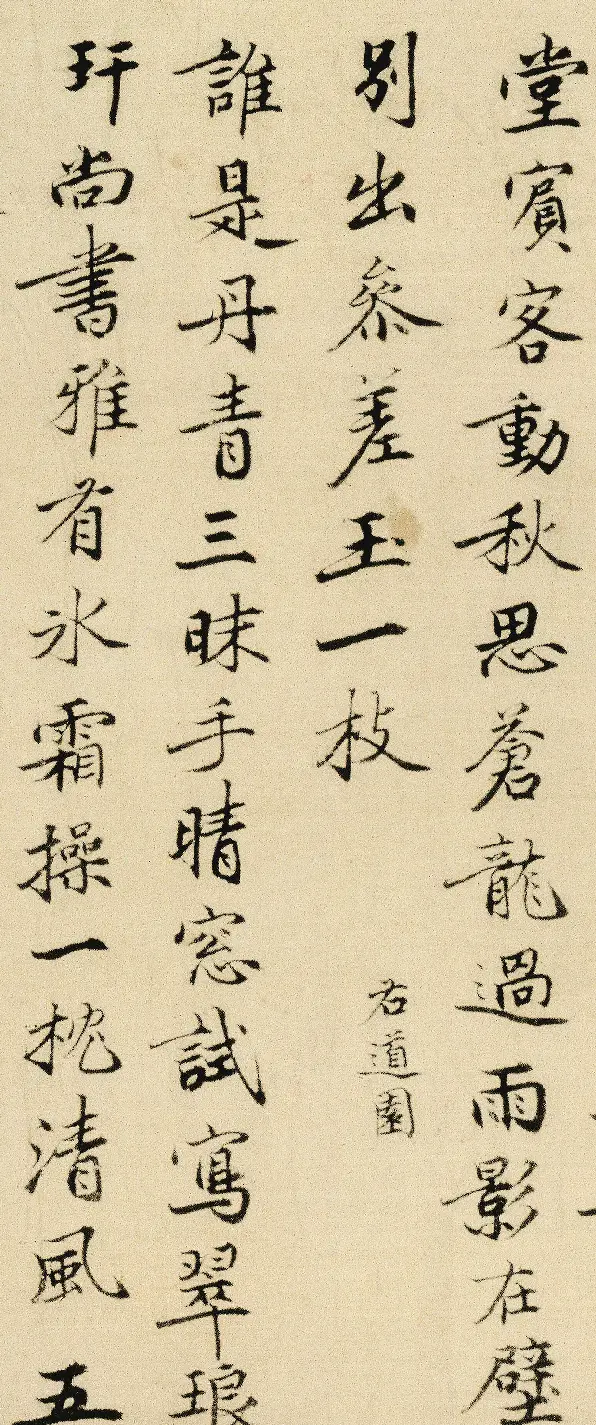 堂賓客動秋思蒼龍過雨影在壁
別出參差玉一枝
右道園
誰是丹青三昧手晴窓試寫翠琅
玕尚書雅有氷霜操一枕清風五